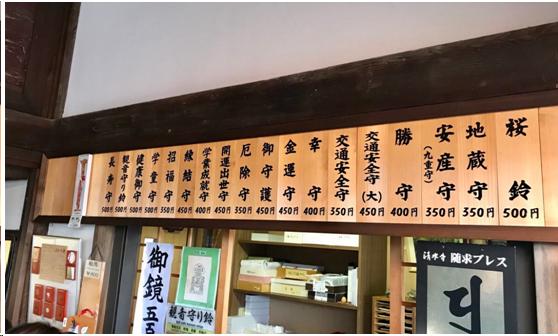 桜鈴 500円
地蔵守 350円
安産守 (九重守) 350円
勝守 400円
交通安全守(大) 450円
交通安全守 350円
幸守 400円
金運守 450円
御守護 450円
厄除守 350円
開運出世守 450円
学業成就守 400円
縁結守 450円
招福守 350円
学童守 350円
健康御守 500円
観音守り鈴 500円
長寿守 500円
清水寺 随求ブレス
観音守り鈴
御鏡 五百
¥400